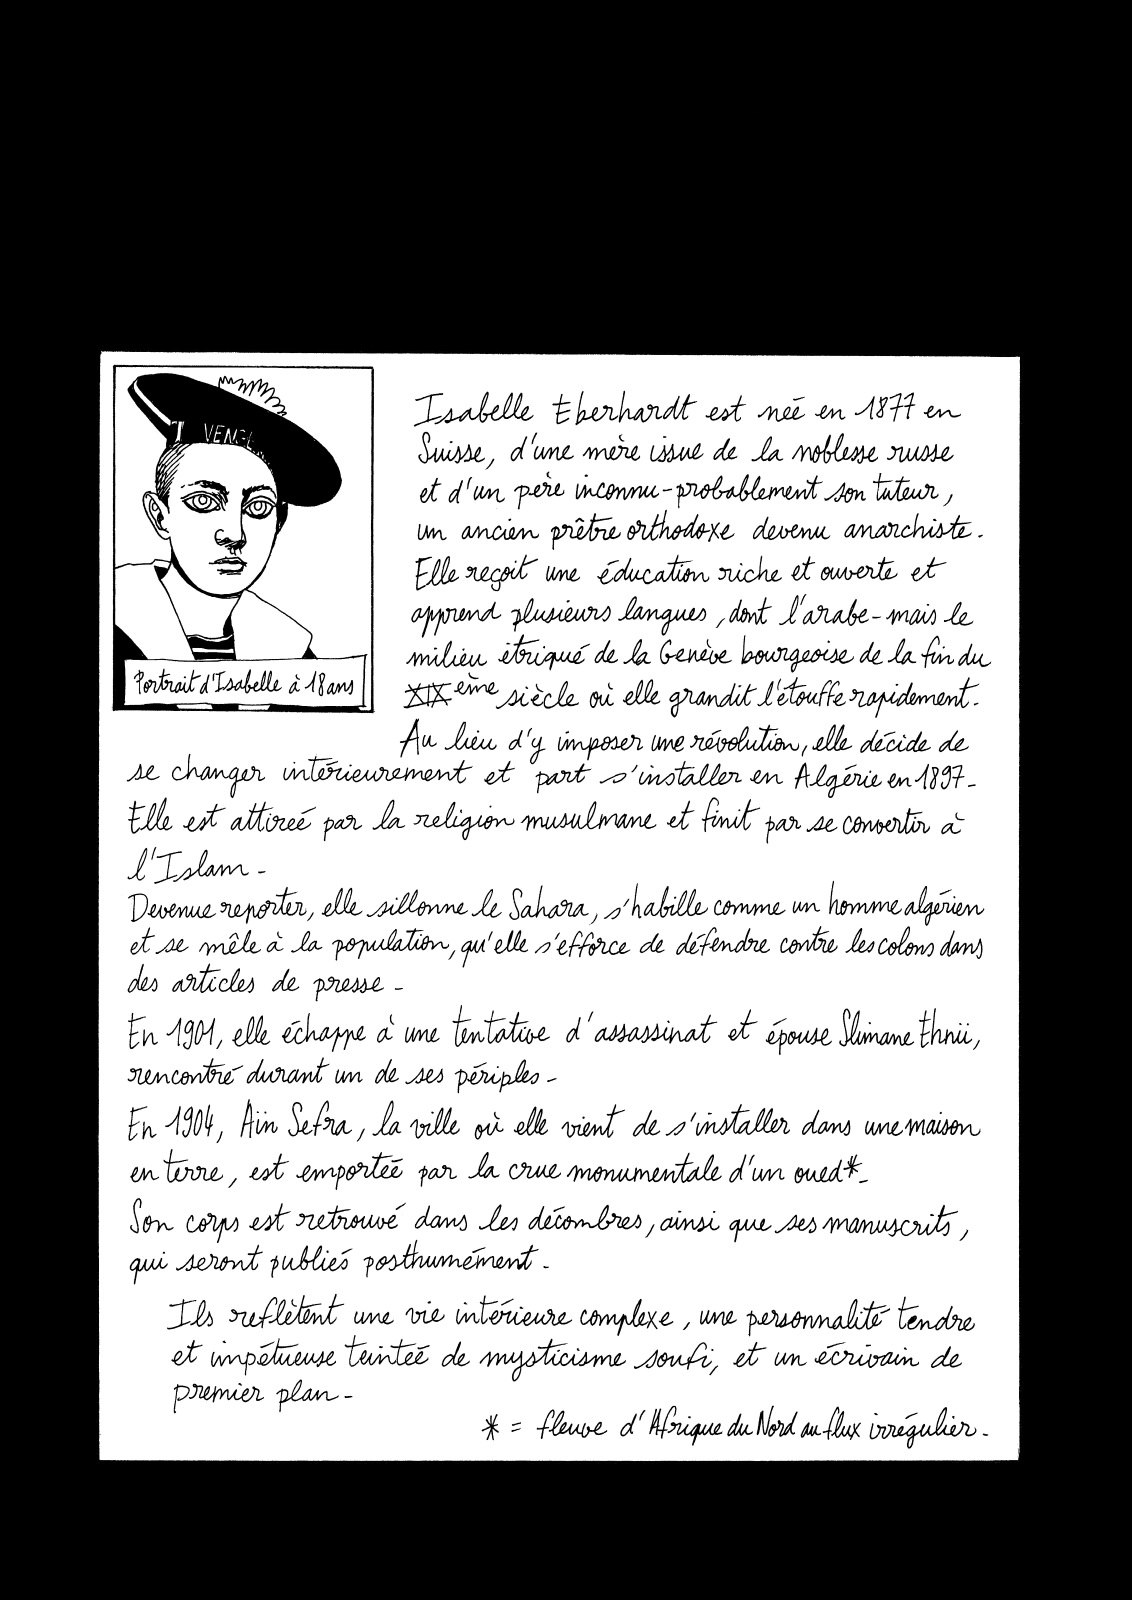 VENGE
Portrait d'Isabelle à 18 ans
Isabelle Eberhardt est née en 1877 en
Suisse, d'une mère issue de la noblesse russe
et d'un père inconnu - probablement son tuteur,
un ancien prêtre orthodoxe devenu anarchiste.
Elle reçoit une éducation riche et ouverte et
apprend plusieurs langues, dont l'arabe - mais le
milieu étriqué de la Genève bourgeoise de la fin du
XIXème siècle où elle grandit l'étouffe rapidement.
Au lieu d'y imposer une révolution, elle décide de
se changer intérieurement et part s'installer en Algérie en 1897-
Elle est attirée par la religion musulmane et finit par se convertir à
l'Islam -
Devenue reporter, elle sillonne le Sahara, s'habille comme un homme algérien
et se mêle à la population, qu'elle s'efforce de défendre contre les colons dans
des articles de presse -
En 1901, elle échappe à une tentative d'assassinat et épouse Slimane Ehnii,
rencontré durant un de ses périples -
En 1904, Aïn Sefra, la ville où elle vient de s'installer dans une maison
en terre, est emportée par la crue monumentale d'un oued*-
Son corps est retrouvé dans les décombres, ainsi que ses manuscrits,
qui seront publiés posthumément -
Ils reflètent une vie intérieure complexe, une personnalité tendre
et impétueuse teintée de mysticisme soufi, et un écrivain de
premier plan -
* = fleuve d'Afrique du Nord au flux irrégulier -